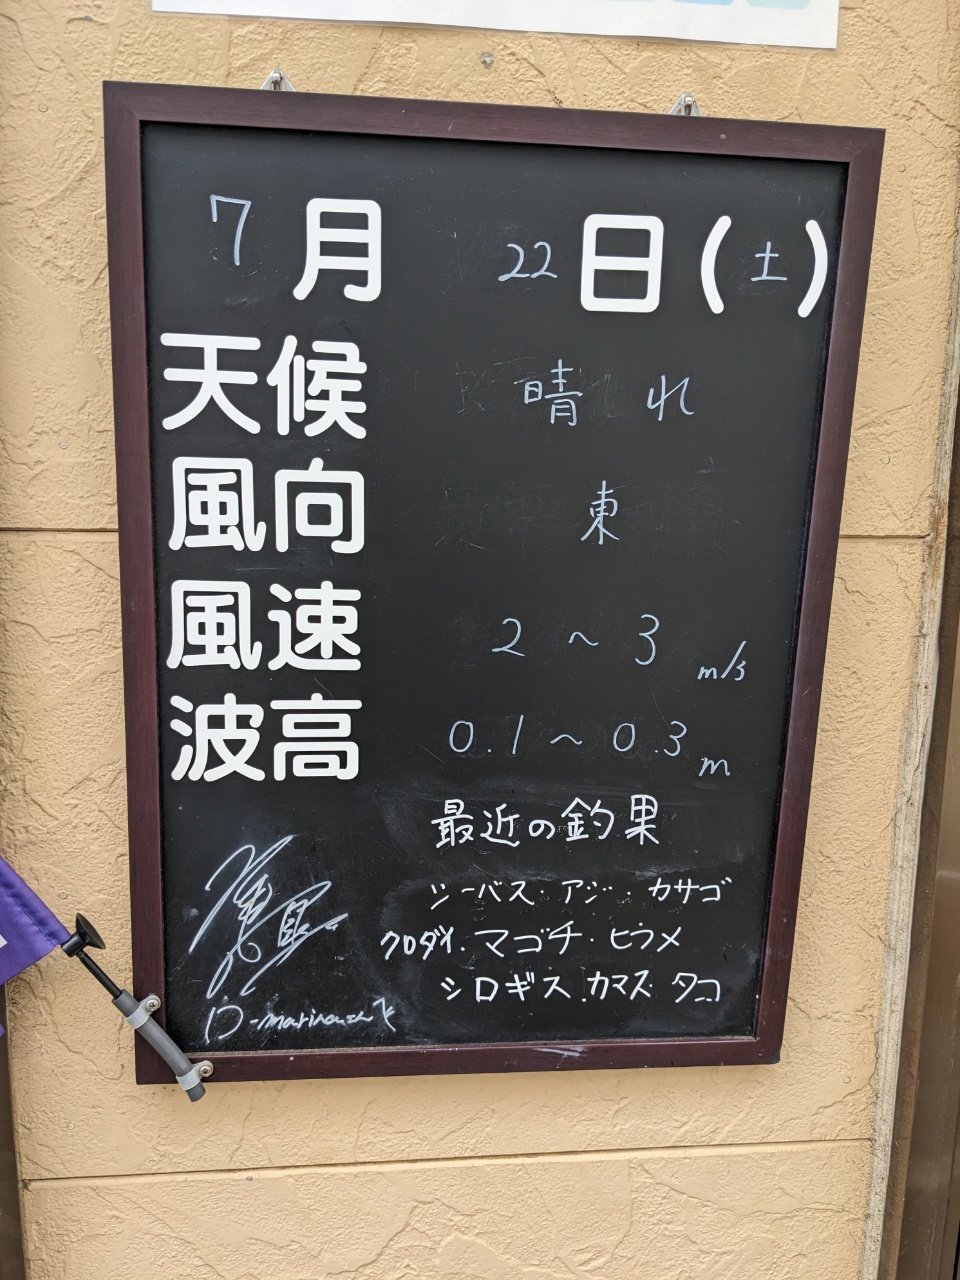 7月 22日(土)
天候 晴れ
風向 東
風速 2~3 m/s
波高 0.1~0.3m
最近の釣果
シーバス・アジ・カサゴ
クロダイ・マゴチ・ヒラメ
シロギス.カマス タコ